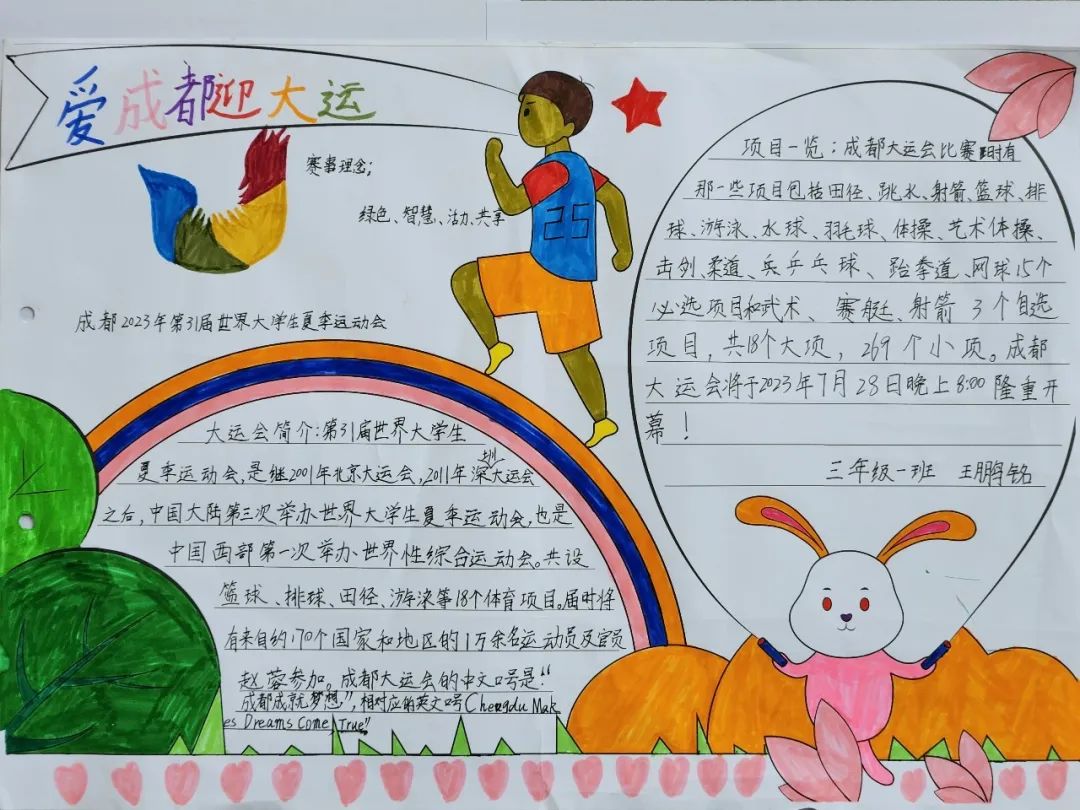 爱成都迎大运
赛事理念；
绿色、智慧、活力、共享
25
成都2023年第31届世界大学生夏季运动会
大运会简介：第31届世界大学生
夏季运动会，是继2001年北京大运会，2011年深圳大运会
之后，中国大陆第三次举办世界大学生夏季运动会，也是
中国西部第一次举办世界性综合运动会。共设
篮球、排球、田径、游泳等18个体育项目。届时将
有来自约170个国家和地区的1万余名运动员及官员
赴蓉参加。成都大运会的中文口号是“
成都成就梦想”，相对应的英文口号Chengdu Mak
es Dreams Come True”
项目一览：成都大运会比赛时有
那一些项目包括田径、跳水、射箭、篮球、排
球、游泳、水球、羽毛球、体操、艺术体操、
击剑、柔道、乒乒乓球、跆拳道、网球15个
必选项目和武术、赛艇、射箭3个自选
项目，共18个大项，269个小项。成都
大运会将于2023年7月28日晚上8:00隆重开
幕！
三年级一班 王鹏铭